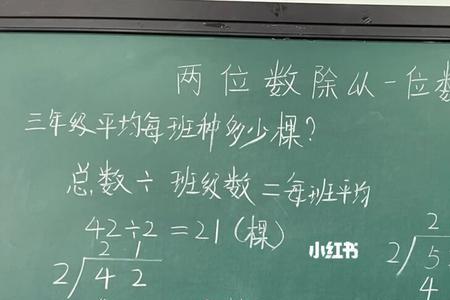 两位数除从一位数
三年级平均每班种多少棵？
总数÷班级数=每班平均
42÷2=21(棵)
2 1
2 4 2
小红书
2
2 5
4